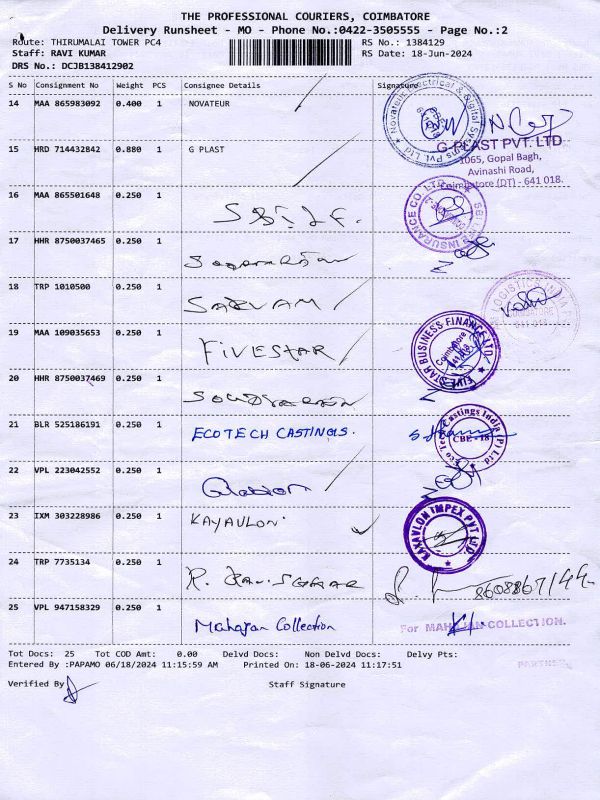 THE PROFESSIONAL COURIERS, COIMBATORE
Delivery Runsheet - MO - Phone No.:0422-3505555 - Page No.:2
Route: THIRUMALAI TOWER PC4 RS No.: 1384129
Staff: RAVI KUMAR RS Date: 18-Jun-2024
DRS No.: DCJB138412902
S No Consignment No Weight PCS Consignee Details Signature
14 MAA 865983092 0.400 1 NOVATEUR
Novateur Electrical & Digital Systems Pvt. Ltd
15 HRD 714432842 0.880 1 G PLAST
G-PLAST PVT. LTD
1065, Gopal Bagh,
Avinashi Road,
Coimbatore (DT) - 641 018.
16 MAA 865501648 0.250 1 SBI LF.
SBI LIFE INSURANCE CO. LTD
17 HHR 8750037465 0.250 1
18 TRP 1010500 0.250 1 SARVAM
LOGISTICS INDIA
19 MAA 109035653 0.250 1 FIVESTAR
FIVE STAR BUSINESS FINANCE LTD.
Coimbatore
20 HHR 8750037469 0.250 1
21 BLR 525186191 0.250 1 ECOTECH CASTINGS.
Eco Tech Castings India (P) Ltd
CBE-18
22 VPL 223042552 0.250 1
23 IXM 303228986 0.250 1 KAYAVLON.
KAYAVLON IMPEX PVT LTD
24 TRP 7735134 0.250 1 R. Ravisankar
25 VPL 947158329 0.250 1 Mahajan Collection
For MAHAJAN COLLECTION.
PARTNER
Tot Docs: 25 Tot COD Amt: 0.00 Delvd Docs: Non Delvd Docs: Delvy Pts:
Entered By :PAPAMO 06/18/2024 11:15:59 AM Printed On: 18-06-2024 11:17:51
Verified By Staff Signature